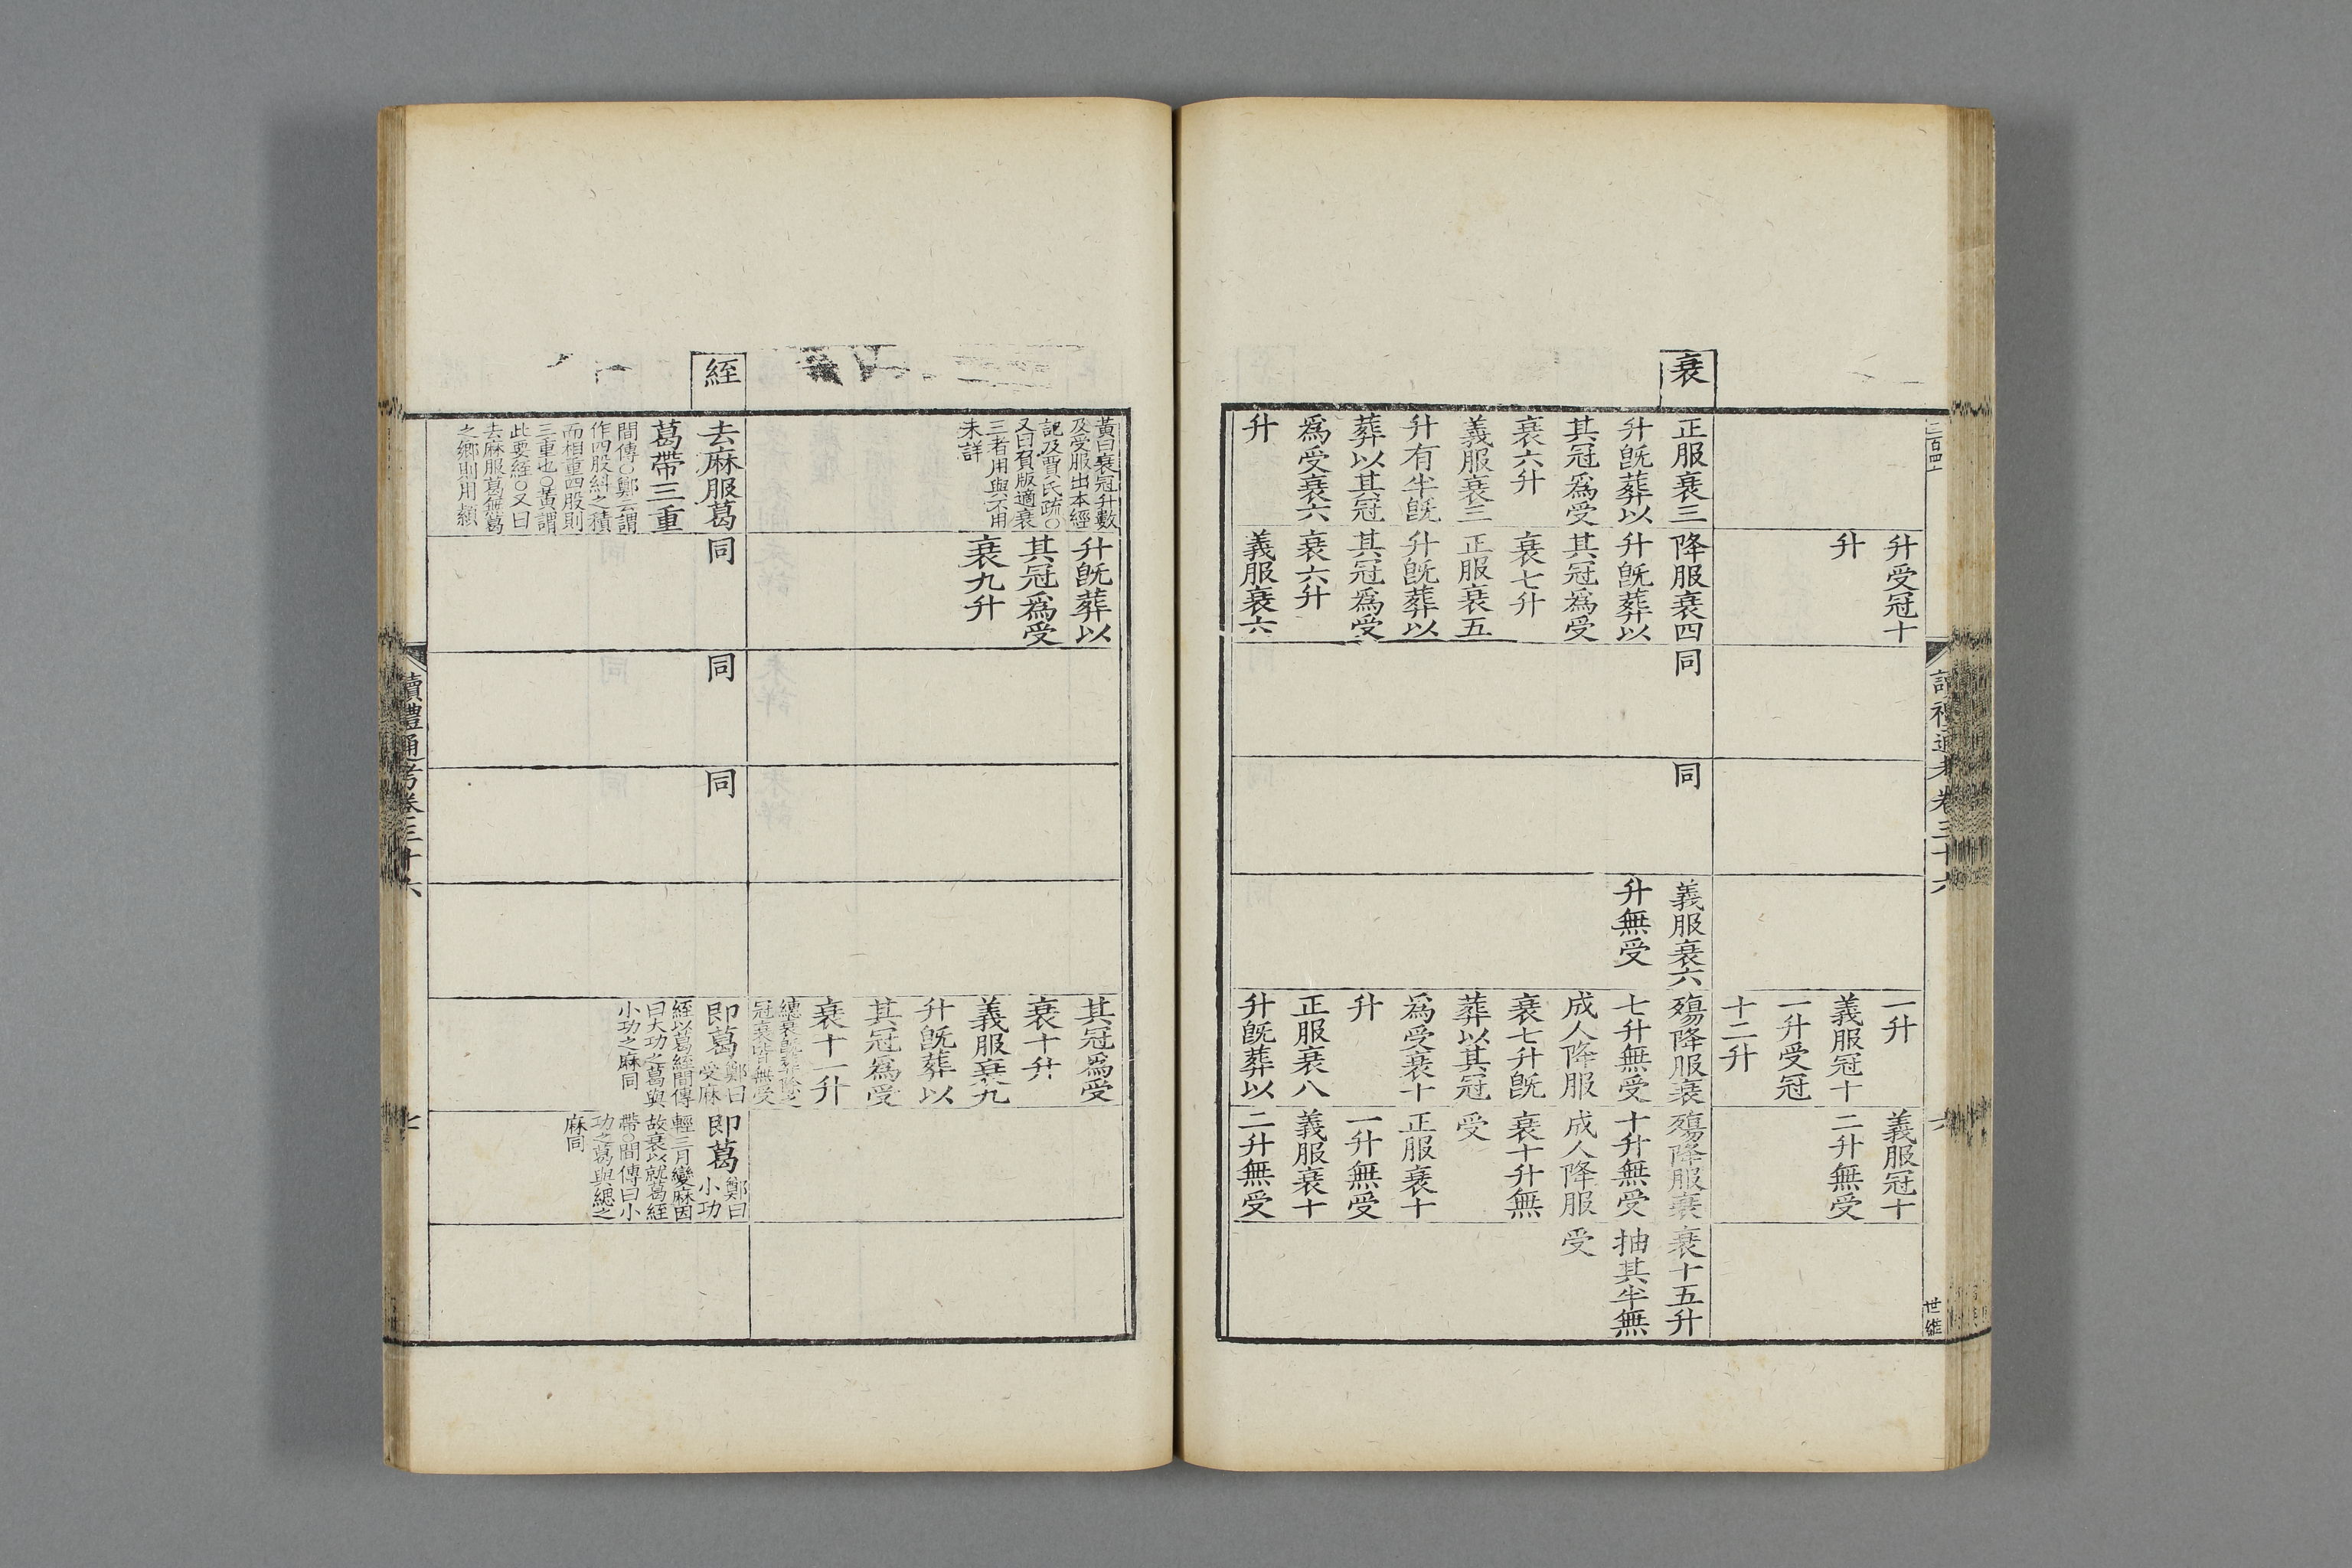 三百四十
讀禮通考卷三十六
六
世維
升受冠十
升
一升
義服冠十
一升受冠
十二升
義服冠十
二升無受
衰
正服衰三
升旣葬以
其冠爲受
衰六升
義服衰三
升有半旣
葬以其冠
爲受衰六
升
降服衰四
升旣葬以
其冠爲受
衰七升
正服衰五
升旣葬以
其冠爲受
衰六升
義服衰六
同
同
義服衰六
升無受
殤降服衰
七升無受
成人降服
衰七升旣
葬以其冠
爲受衰十
升
正服衰八
升旣葬以
殤降服衰
十升無受
成人降服
衰十升無
受
正服衰十
一升無受
義服衰十
二升無受
衰十五升
抽其半無
受
黃曰衰冠升數
及受服出本經
記及賈氏疏○
又曰負版適衰
三者用與不用
未詳
升旣葬以
其冠爲受
衰九升
其冠爲受
衰十升
義服衰九
升旣葬以
其冠爲受
衰十一升
繐衰旣葬除之
冠衰皆無受
絰
去麻服葛
葛帶三重
間傳○鄭云謂
作四股糾之積
而相重四股則
三重也○黃謂
此要絰○又曰
去麻服葛無葛
之鄉則用顈
同
同
同
卽葛鄭曰
受麻
絰以葛絰間傳
曰大功之葛與
小功之麻同
卽葛鄭曰
小功
輕三月變麻因
故衰以就葛絰
帶○間傳曰小
功之葛與緦之
麻同
讀禮通考卷三十六
七